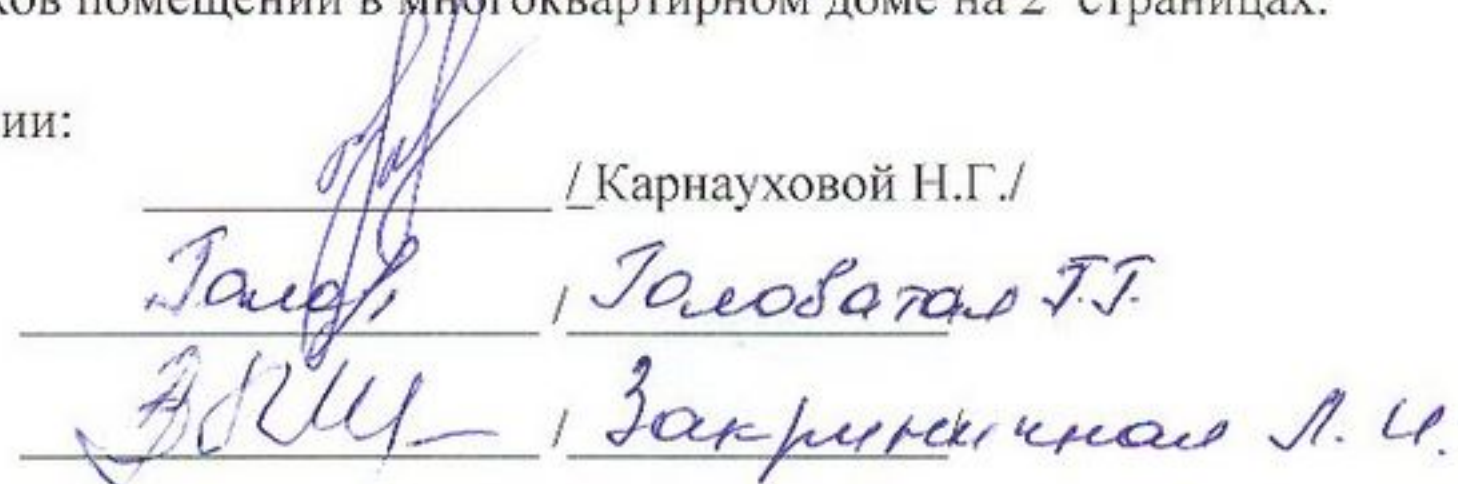 ков помещений в многоквартирном доме на 2 страницах.
ии:
/ Карнауховой Н.Г./
/ Головатая Г.Г.
/ Закриничная Л. И.